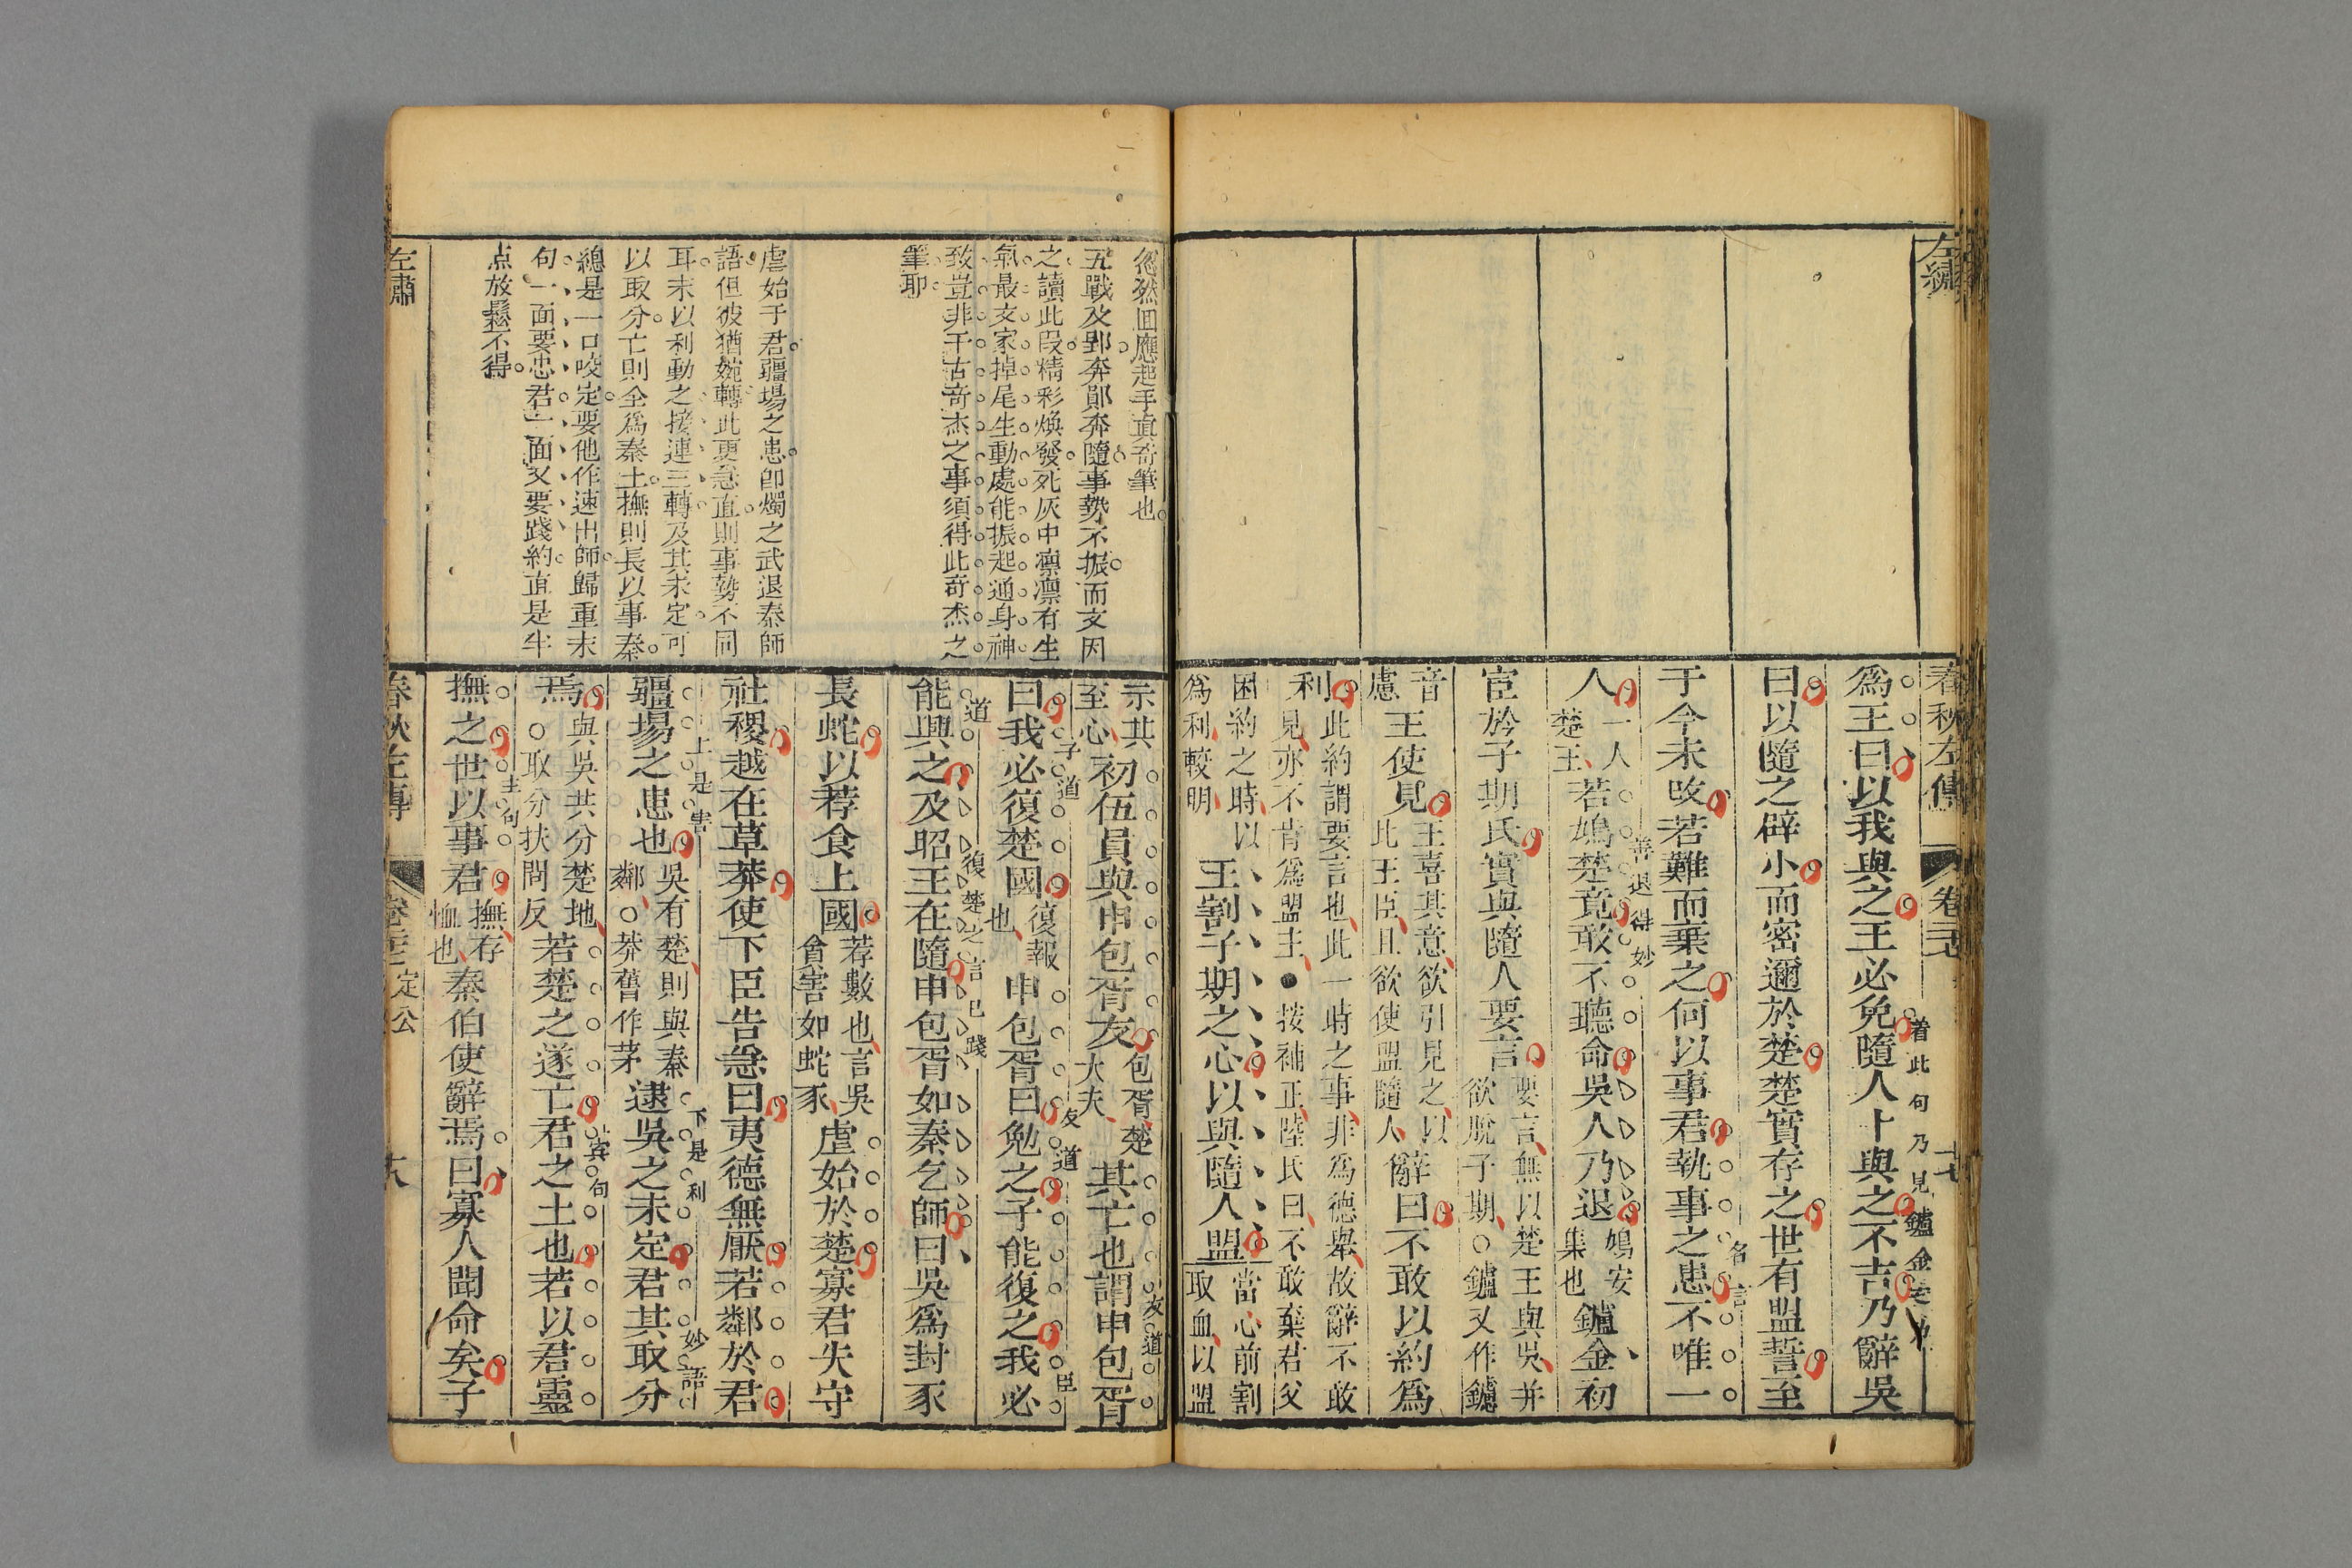 左繡
春秋左傳
卷二十七
十七
着此句乃見鑪金
爲王曰以我與之王必免隨人卜與之不吉乃辭吳
曰以隨之辟小而密邇於楚楚實存之世有盟誓至
于今未改若難而棄之何以事君執事之患不唯一
名言
人一人楚王若鳩楚竟敢不聽命吳人乃退鳩安集也鑪金初
善退得妙
宦於子期氏實與隨人要言要言無以楚王與吳并欲脫子期○鑪又作鑢
音慮王使見王喜其意欲引見之以此王臣且欲使盟隨人辭曰不敢以約爲
利此約謂要言也此一時之事非爲德舉故辭不敢見亦不肯爲盟主●按補正陸氏曰不敢棄君父
困約之時以爲利較明王割子期之心以與隨人盟當心前割取血以盟
忽然囬應起手真奇筆也
五戰及郢奔鄖奔隨事勢不振而文因
之讀此段精彩煥發死灰中凛凛有生
氣最文家掉尾生動處能振起通身神
致豈非千古奇杰之事須得此奇杰之
筆耶
虐始于君疆場之患卽燭之武退秦師
語但彼猶婉轉此更急直則事勢不同
耳末以利動之接連三轉及其未定可
以取分亡則全爲秦土撫則長以事秦
總是一口咬定要他作速出師歸重末
句一面要忠君一面又要踐約直是半
点放鬆不得
示其至心初伍員與申包胥友包胥楚大夫其亡也謂申包胥
友道
曰我必復楚國復報也申包胥曰勉之子能復之我必
子道
友道
臣
能興之及昭王在隨申包胥如秦乞師曰吳爲封豕
道
復楚之言已踐
長蛇以荐食上國荐數也言吳貪害如蛇豕虐始於楚寡君失守
社稷越在草莽使下臣告急曰夷德無厭若鄰於君
疆場之患也吳有楚則與秦鄰○莽舊作茅逮吳之未定君其取分
上是害
下是利
妙語
焉與吳共分楚地○取分扶問反若楚之遂亡君之土也若以君靈
賓句
撫之世以事君撫存恤也秦伯使辭焉曰寡人聞命矣子
主句
左繡
春秋左傳
定公
十八